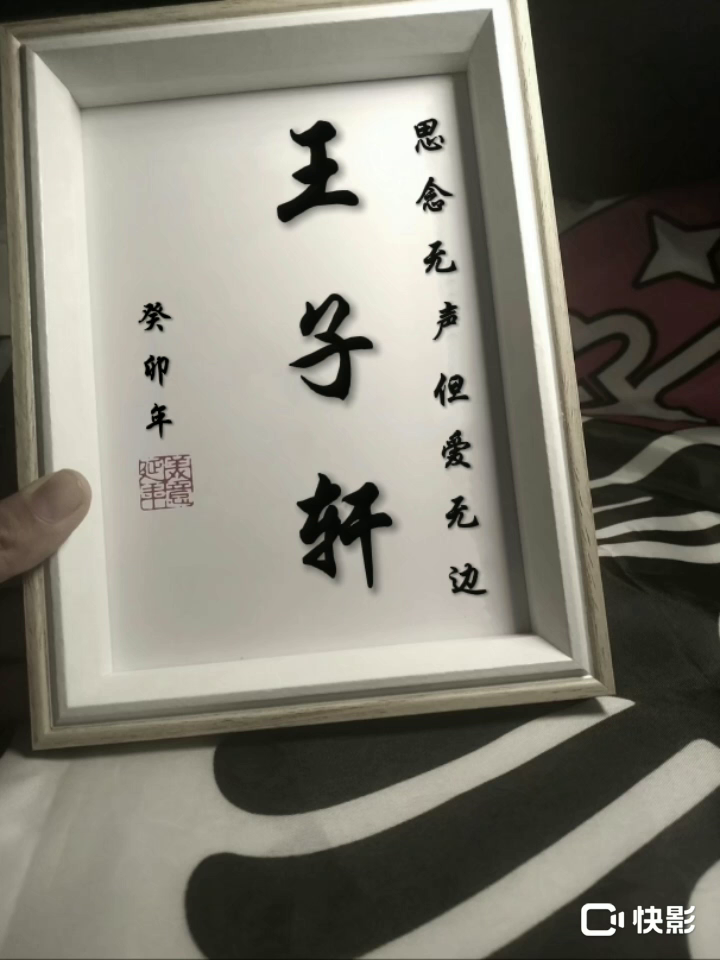 思念无声但爱无边
王子轩
癸卯年
美意
延年
快影